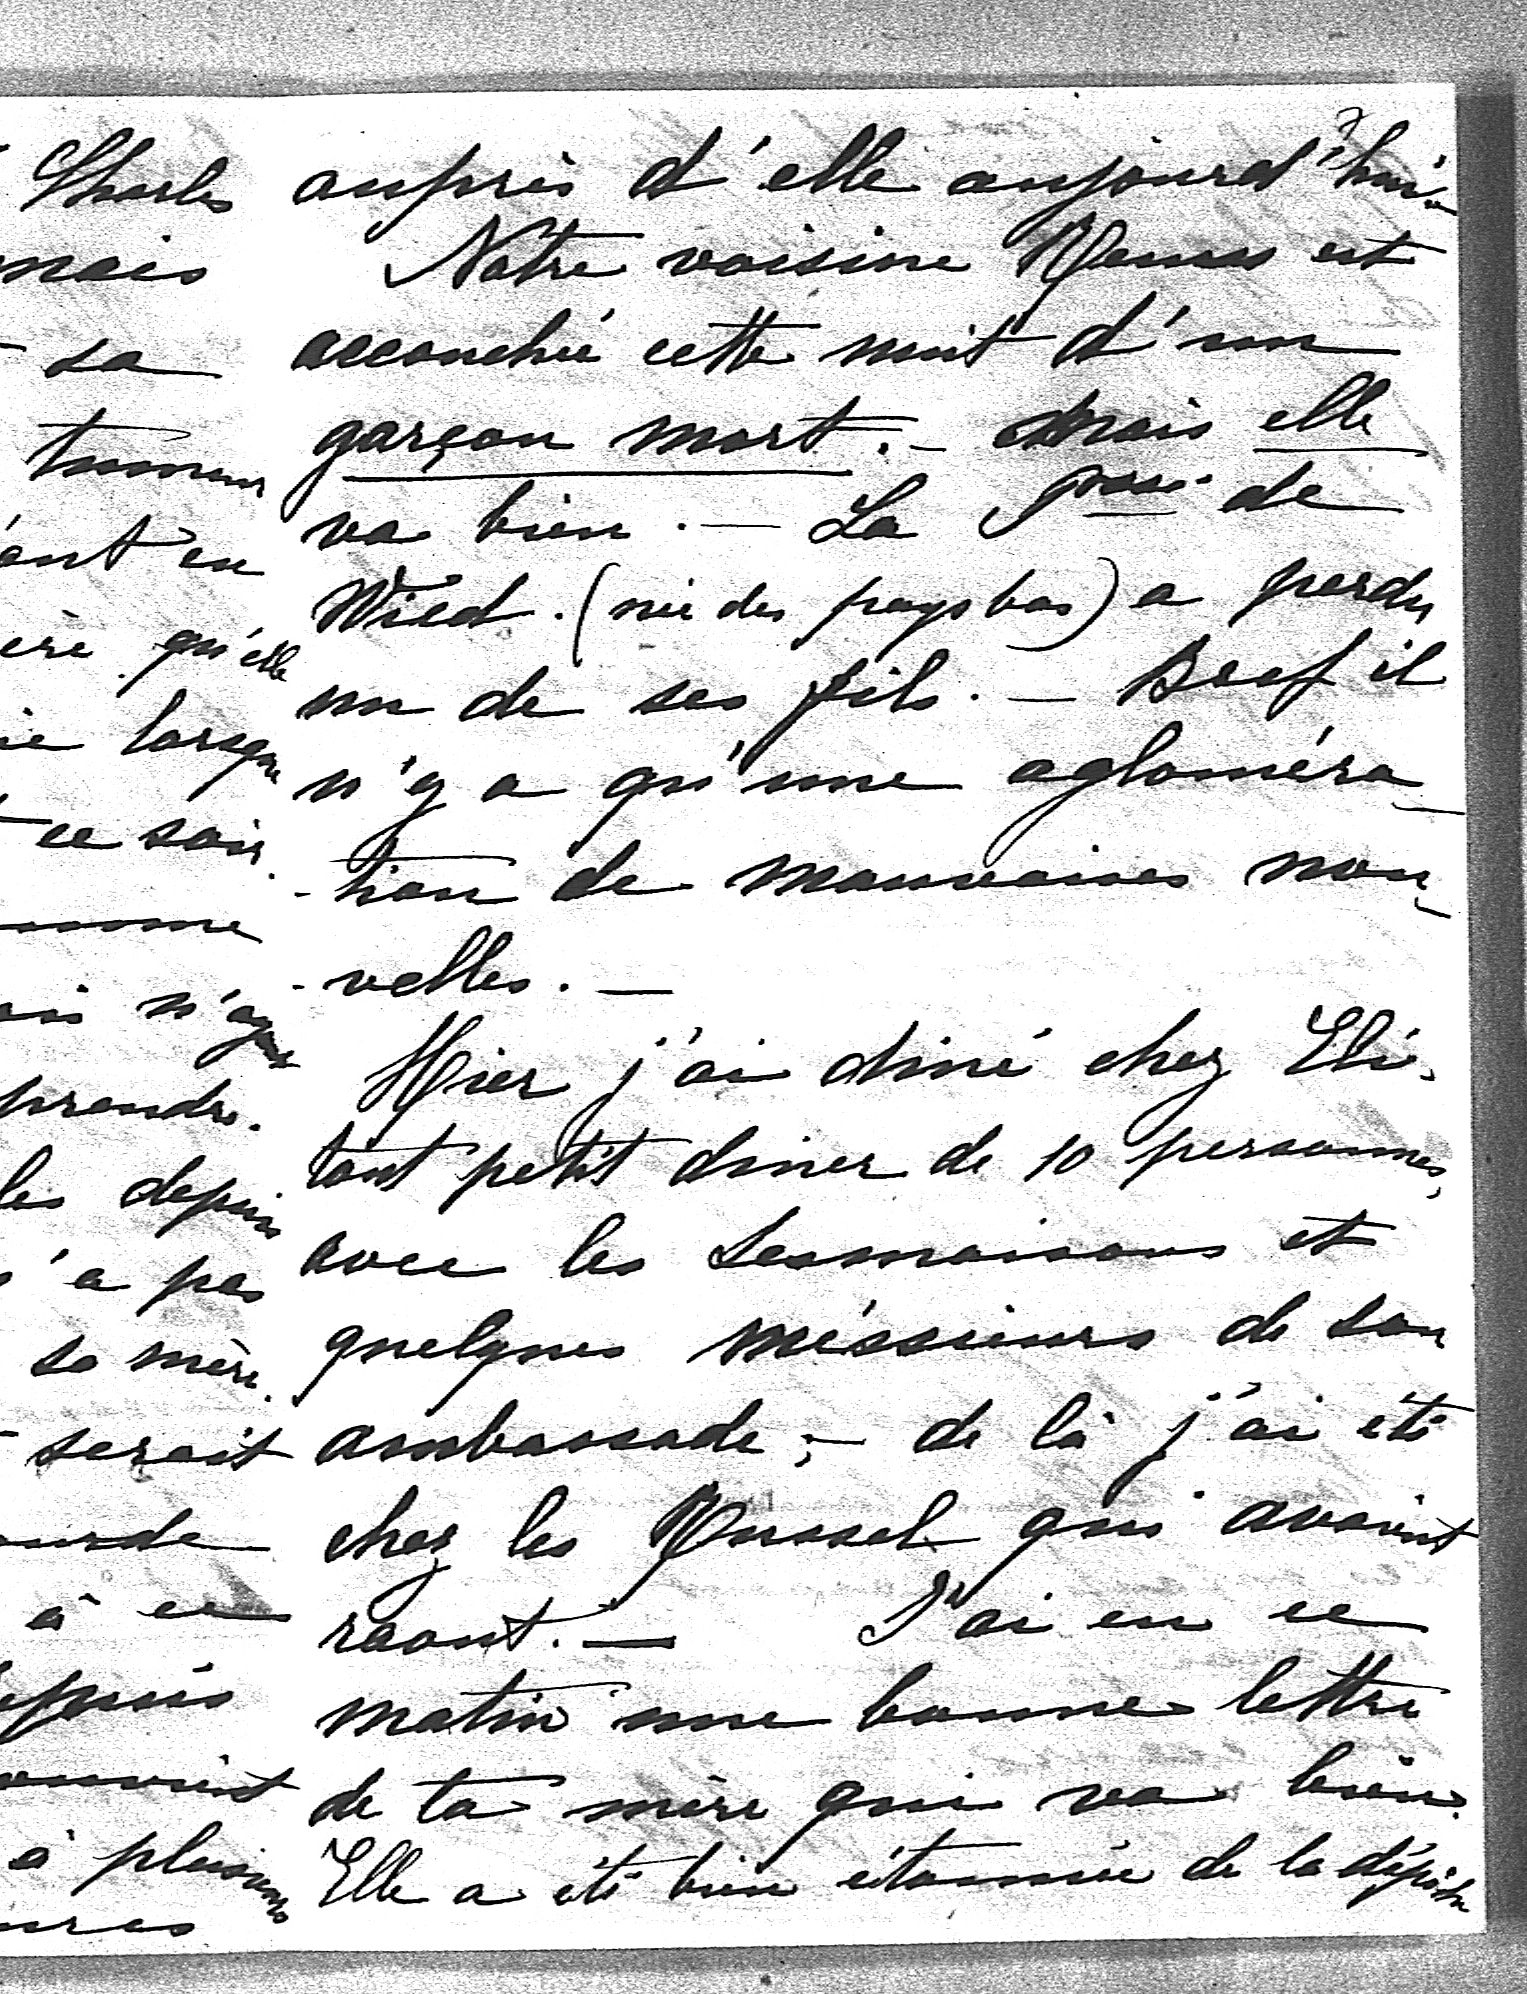 Charles
mais
sa
tumeur
qu'elle
lorsque
ce soir.
prendre.
depuis
a pas
sa mère.
serait
à ce
à plusieurs
auprès d'elle aujourd'hui.
Notre voisine Reuss est
accouchée cette nuit d'un
garçon mort. — mais elle
va bien. — La Pcesse de
Wied. (née des pays bas) a perdu
un de ses fils. — Bref il
n'y a qu'une agloméra-
-tion de mauvaises nou-
-velles. —
Hier j'ai diné chez Eli.
tout petit diner de 10 personnes,
avec les Lesmaisons et
quelques méssieurs de son
ambassade; — de là j'ai été
chez les Roussel qui avaient
raout. — J'ai eu ce
matin une bonne lettre
de ta mère qui va bien.
Elle a été bien étonnée de la dépêche